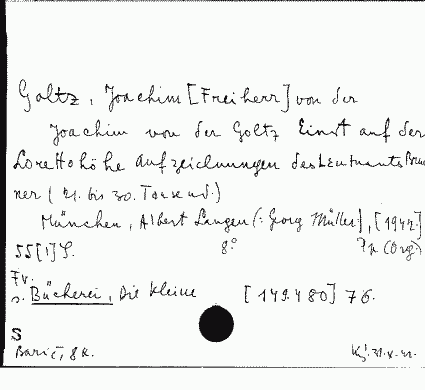 Goltz, Joachim [Freiherr] von der
Joachim von der Goltz Einst auf der
Lorettohöhe Aufzeichnungen des Leutnants Brun
ner (21. bis 30. Tausend.)
München, Albert Langen (: Georg Müller), [1942.]
55 [1] S. 8° 7k (Org.)
Fv.
s. Bücherei, Die kleine [149.480] 76.
S
Barić, 8k.